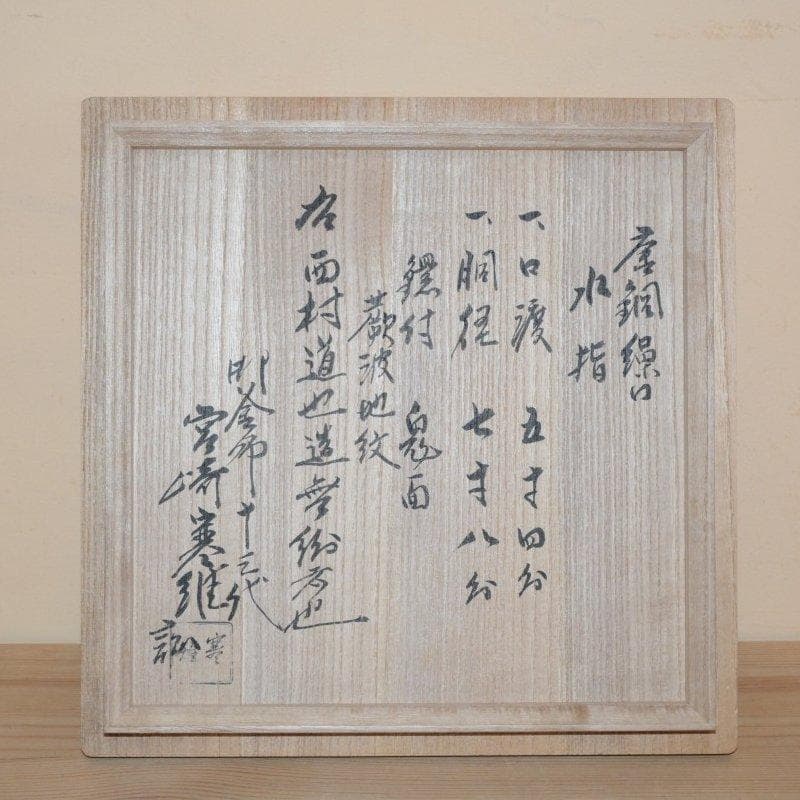 唐銅繰口
水指
一、口渡 五寸四分
一、胴径 七寸八分
鐶付 鬼面
蕨波地紋
右西村道也造無紛者也
御釜師十三代
宮崎寒雉
寒雉